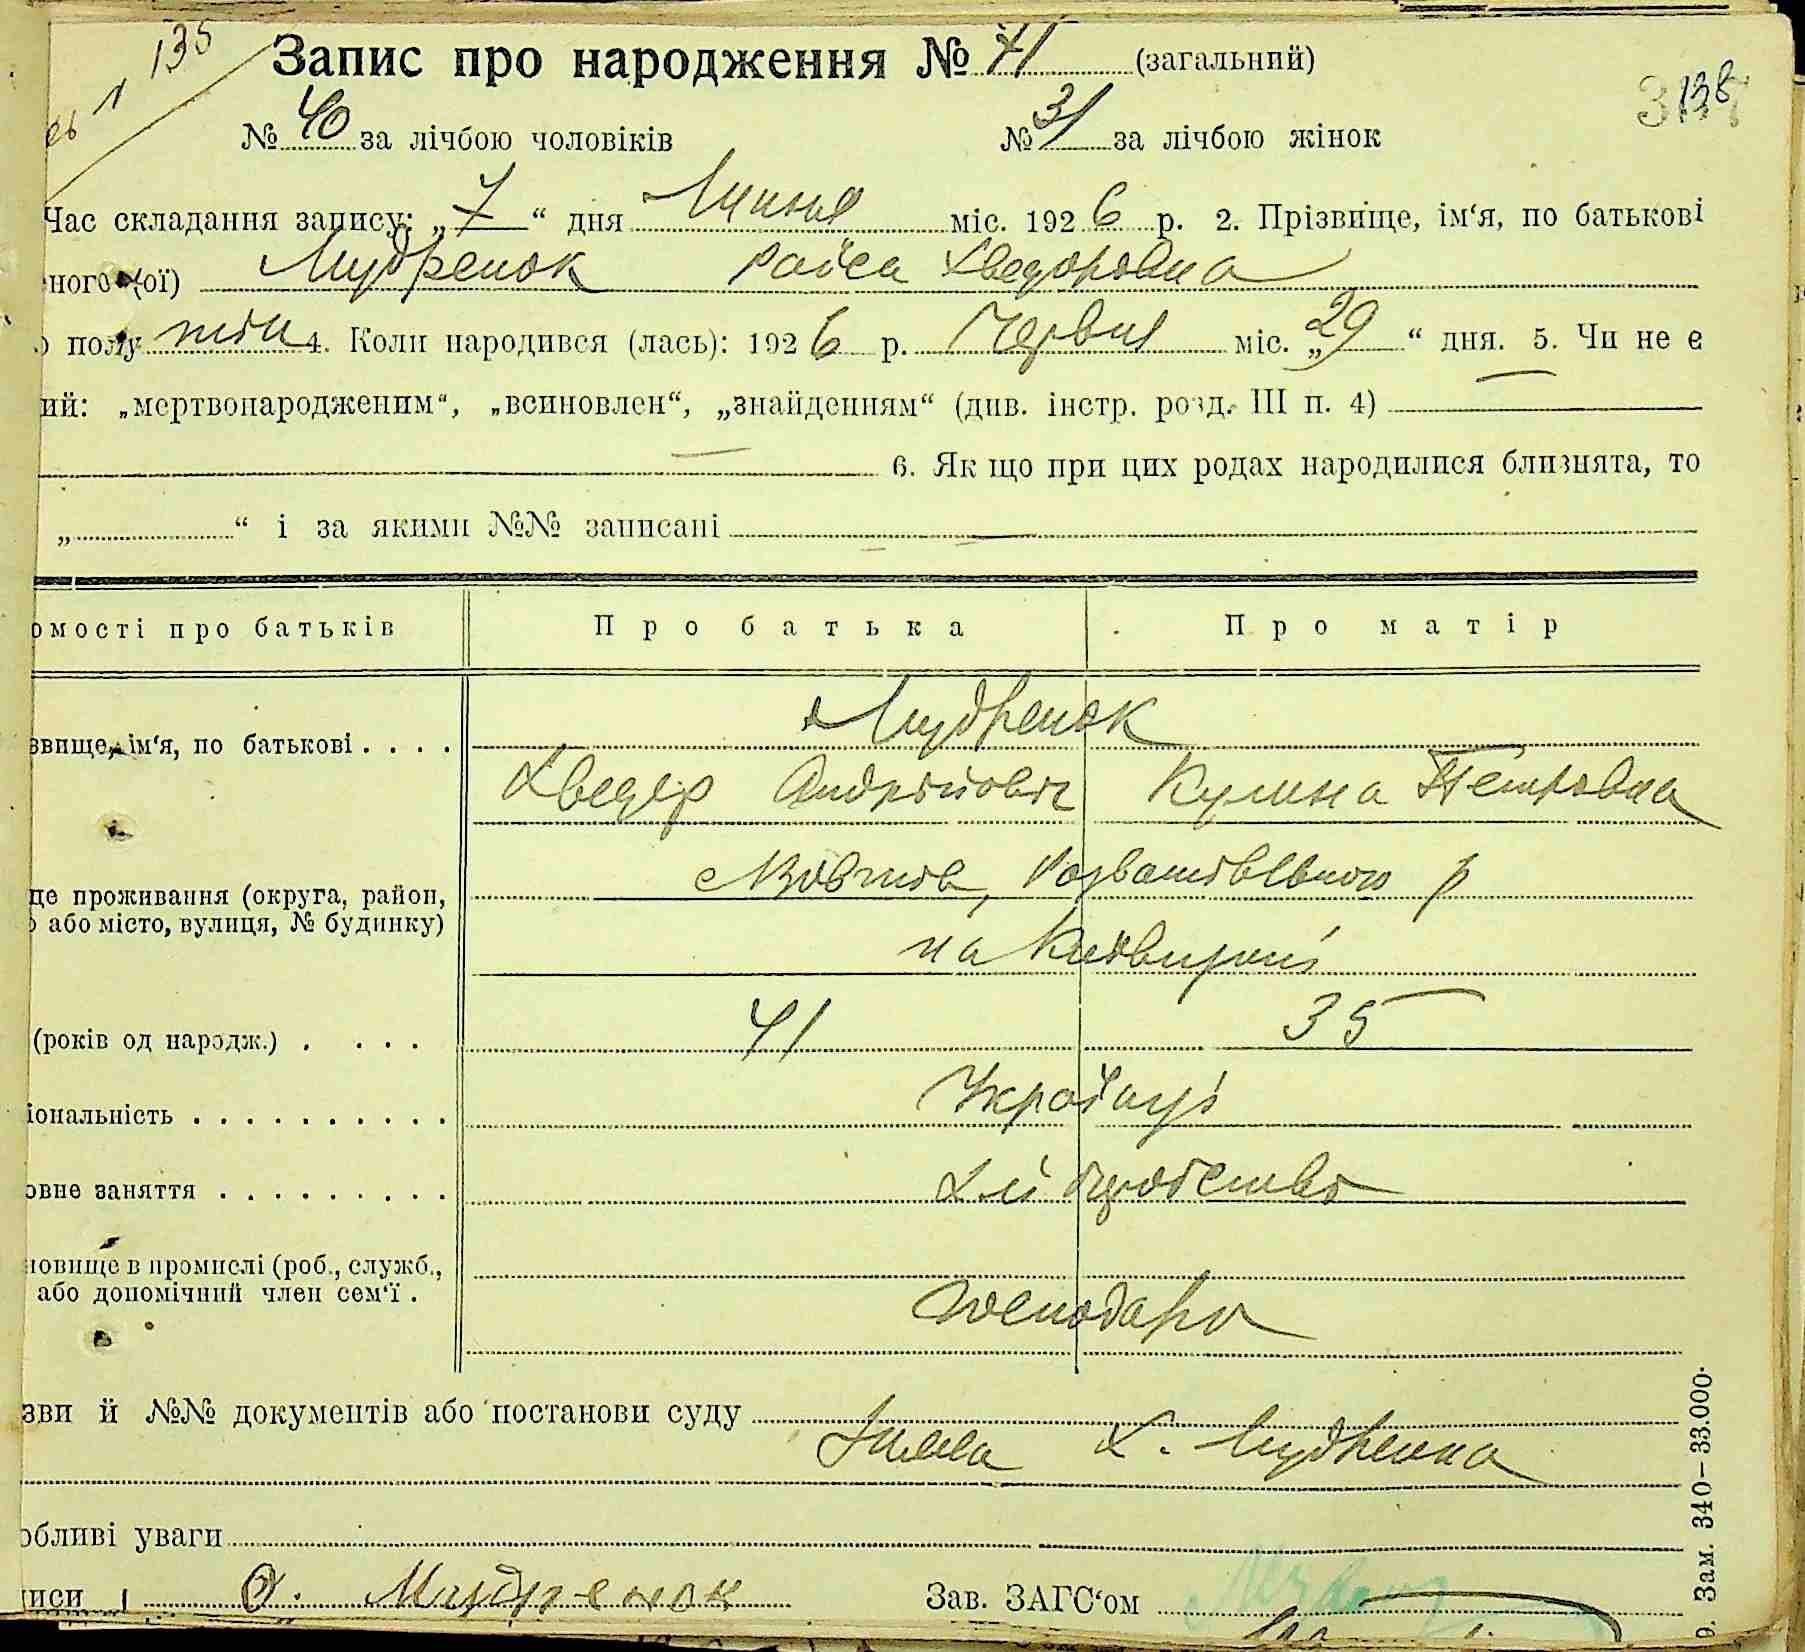 135
Запис про народження № 71 (загальний)
138
№ 40 за лічбою чоловіків № 31 за лічбою жінок
Час складання запису: „7“ дня Липня міс. 1926 р. 2. Прізвище, ім‘я, по батькові
ного (ої) Мудренок Раїса Хведоровна
полу жін 4. Коли народився (лась): 1926 р. Червня міс. „29“ дня. 5. Чи не є
ий: „мертвонародженим“, „всиновлен“, „знайденням“ (див. інстр. розд. III п. 4)
6. Як що при цих родах народилися близнята, то
„ “ і за якими №№ записані
омості про батьків Про батька Про матір
Мудренок
звище, ім‘я, по батькові . . . .
Хведер Андрійович Кулина Петровна
це проживання (округа, район, Розважівського р
або місто, вулиця, № будинку)
на Київщині
(років од народж.) . . . . 41 35
іональність . . . . . . . . . . Українці
овне заняття . . . . . . . . . Хліборобство
новище в промислі (роб., служб.,
або допомічний член сем‘ї . Господарі
зви й №№ документів або постанови суду
Заява Х. Мудренка
обливі уваги
иси Х. Мудренок Зав. ЗАГС‘ом
9. Зам. 340–33.000.